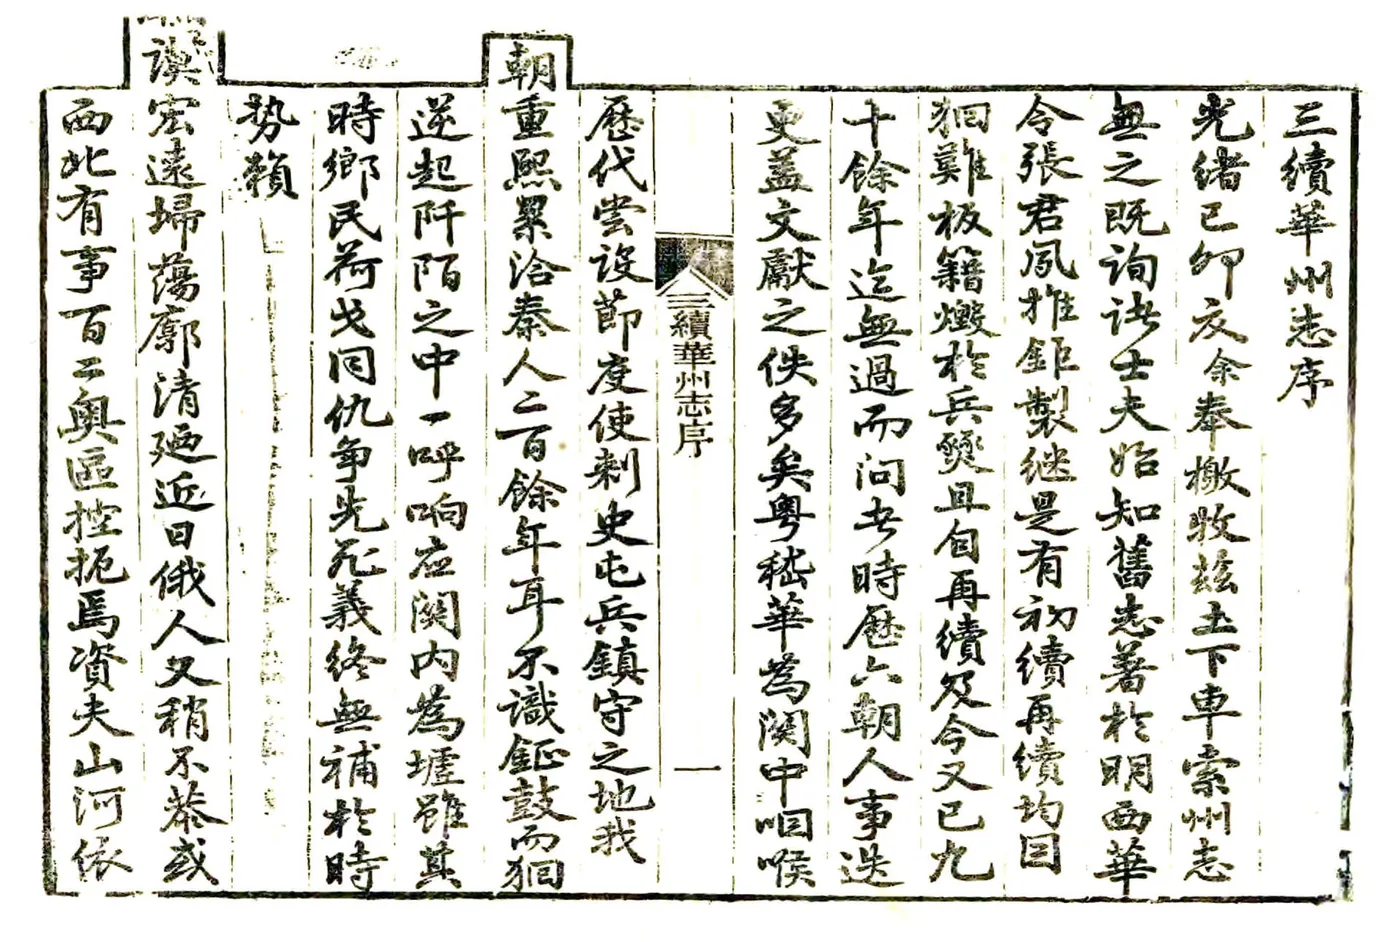 三續華州志序
光緒己卯夏余奉檄牧茲土下車索州志
無之既詢諸士夫始知舊志著於明西華
令張君夙推鉅製繼是有初續再續均因
狪難板籍燬於兵燹且自再續及今又已九
十餘年迄無過而問者時歷六朝人事迭
更蓋文獻之佚多矣粵嵇華為關中咽喉
三續華州志序
一
歷代嘗設節度使刺史屯兵鎮守之地我
朝重熙累洽秦人二百餘年耳不識鉦鼓而狪
逆起阡陌之中一呼响应關內為墟雖其
時鄉民荷戈同仇爭先死義終無補於時
勢賴
謨宏遠埽蕩廓清廼近日俄人又稍不恭或
西北有事百二奧區控扼焉資夫山河依